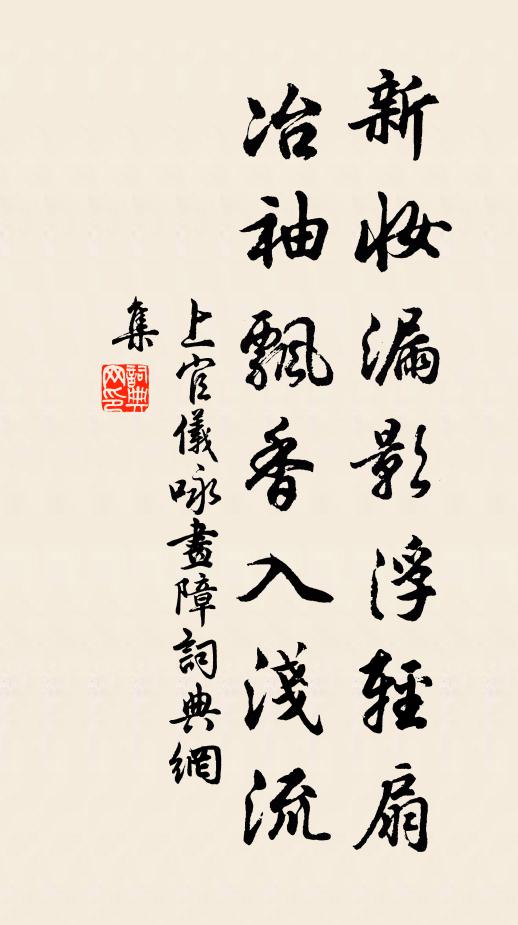 新妝漏影浮輕扇
冶袖飄香入淺流
上官儀咏畫障詞典網
集
詞典網印